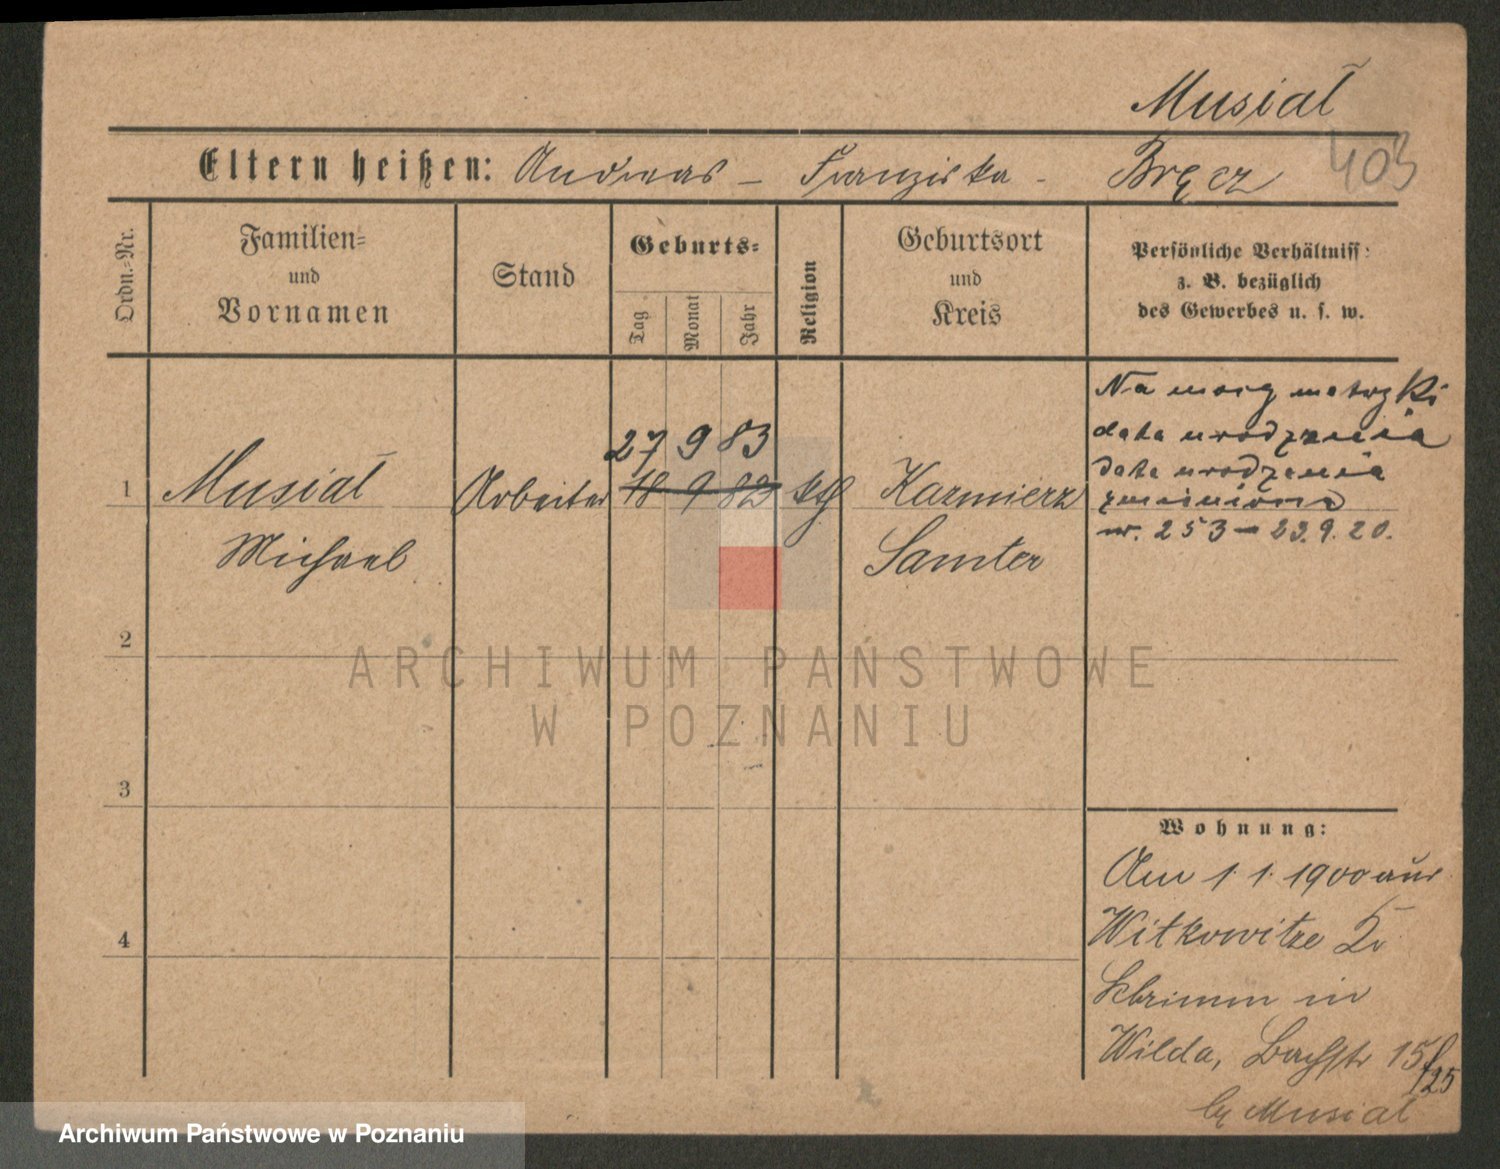 Musiał
403
Eltern heißen: Andreas – Franziska – Bręcz
Ordn.-Nr.
Familien-
und
Vornamen
Stand
Geburts-
Tag
Monat
Jahr
Religion
Geburtsort
und
Kreis
Persönliche Verhältniss:
z. B. bezüglich
des Gewerbes u. s. w.
Na mocy metryki
data urodzenia
data urodzenia
zmieniona
nr. 253 – 23.9.20.
27 9 83
1 Musiał Arbeiter 18 9 82 kth Kazmierz
Michael Samter
2
3
4
Wohnung:
Am 1. 1. 1900 aus
Witkowitze
Schrimm in
Wilda, Bachstr 15
/25
by Musiał
ARCHIWUM PAŃSTWOWE
W POZNANIU
Archiwum Państwowe w Poznaniu